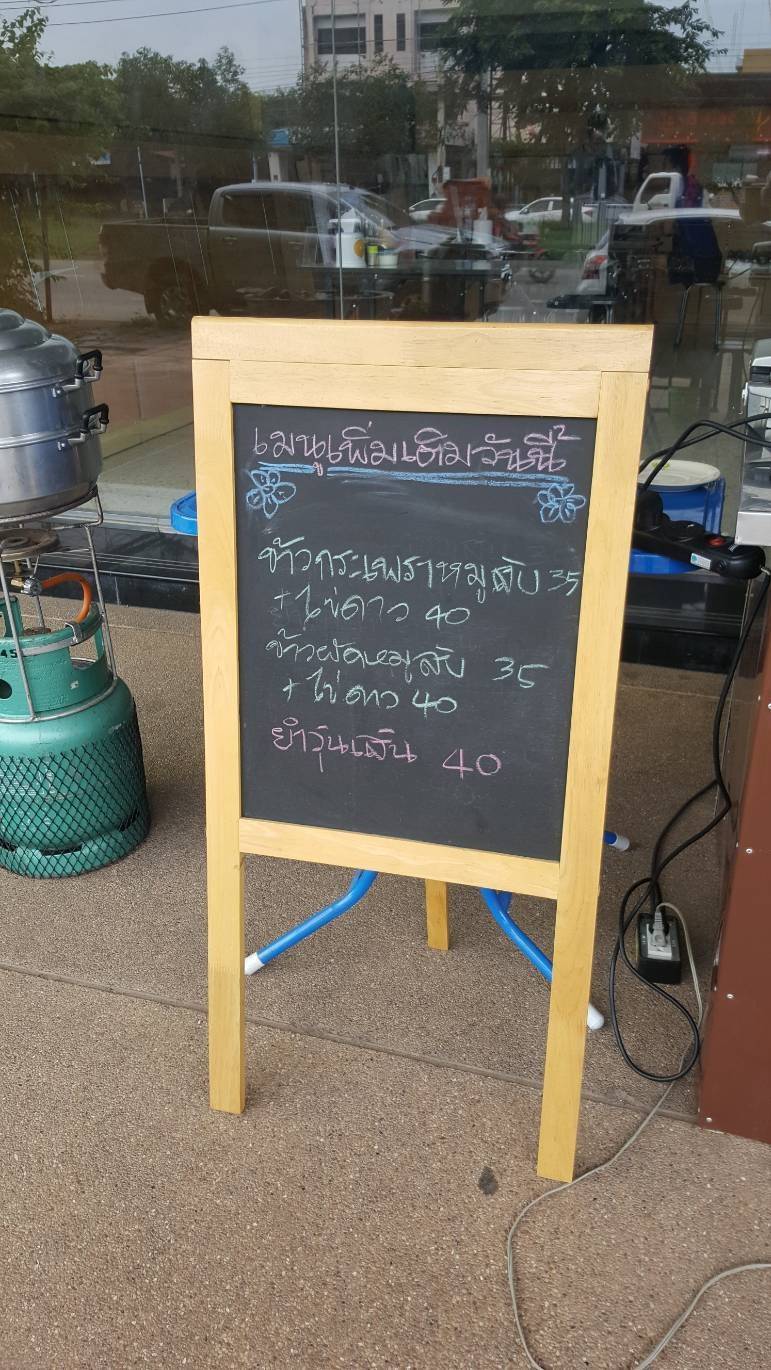 เมนูเพิ่มเติมวันนี้
ข้าวกระเพราหมูสับ 35
+ ไข่ดาว 40
ข้าวผัดหมูสับ 35
+ ไข่ดาว 40
ยำวุ้นเส้น 40